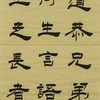 道恭兄弟
何生言語
坐走長者